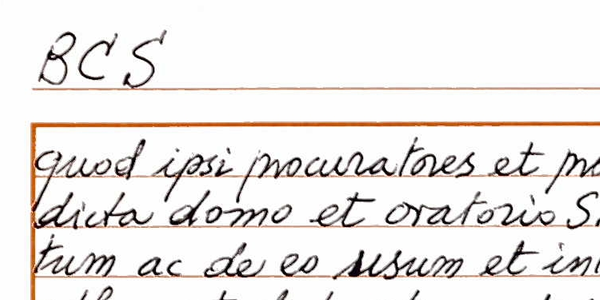 BCS
quod ipsi procuratores et
dicta domo et oratorio S.
tum ac de eo usum et